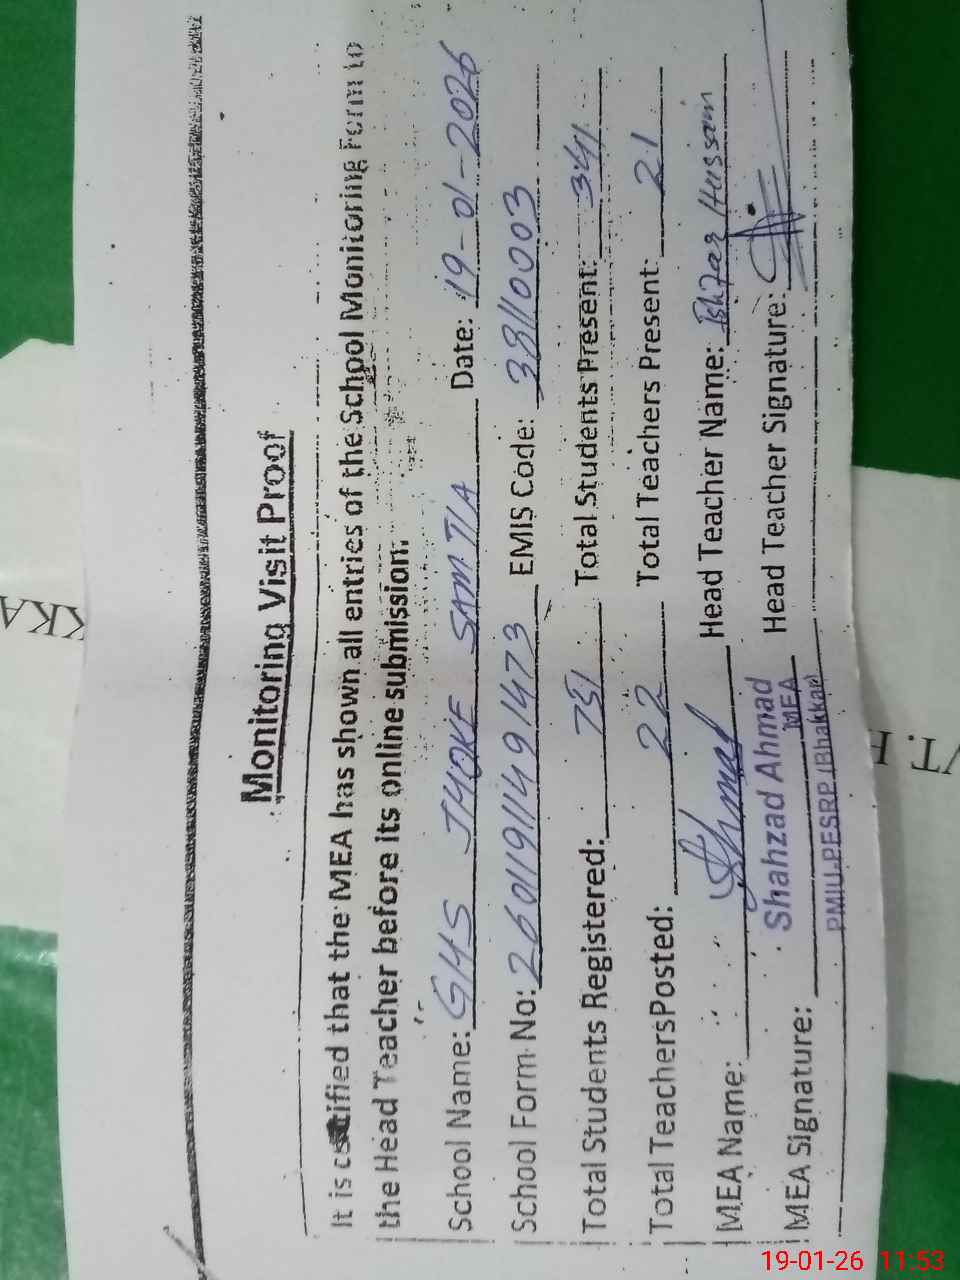 Monitoring Visit Proof
It is certified that the MEA has shown all entries of the School Monitoring Form to
the Head Teacher before its online submission.
School Name: GHS JHOKE SAMTIA Date: 19-01-2026
School Form No: 2601191149 91473 EMIS Code: 38110003
Total Students Registered: 731 Total Students Present: 341
Total Teachers Posted: 22 Total Teachers Present: 21
MEA Name: Head Teacher Name: Hussain
Shahzad Ahmad
MEA
MEA Signature: Head Teacher Signature:
PMIU-PESRP (Bhakkar)
KKA
VT. H
19-01-26 11:53